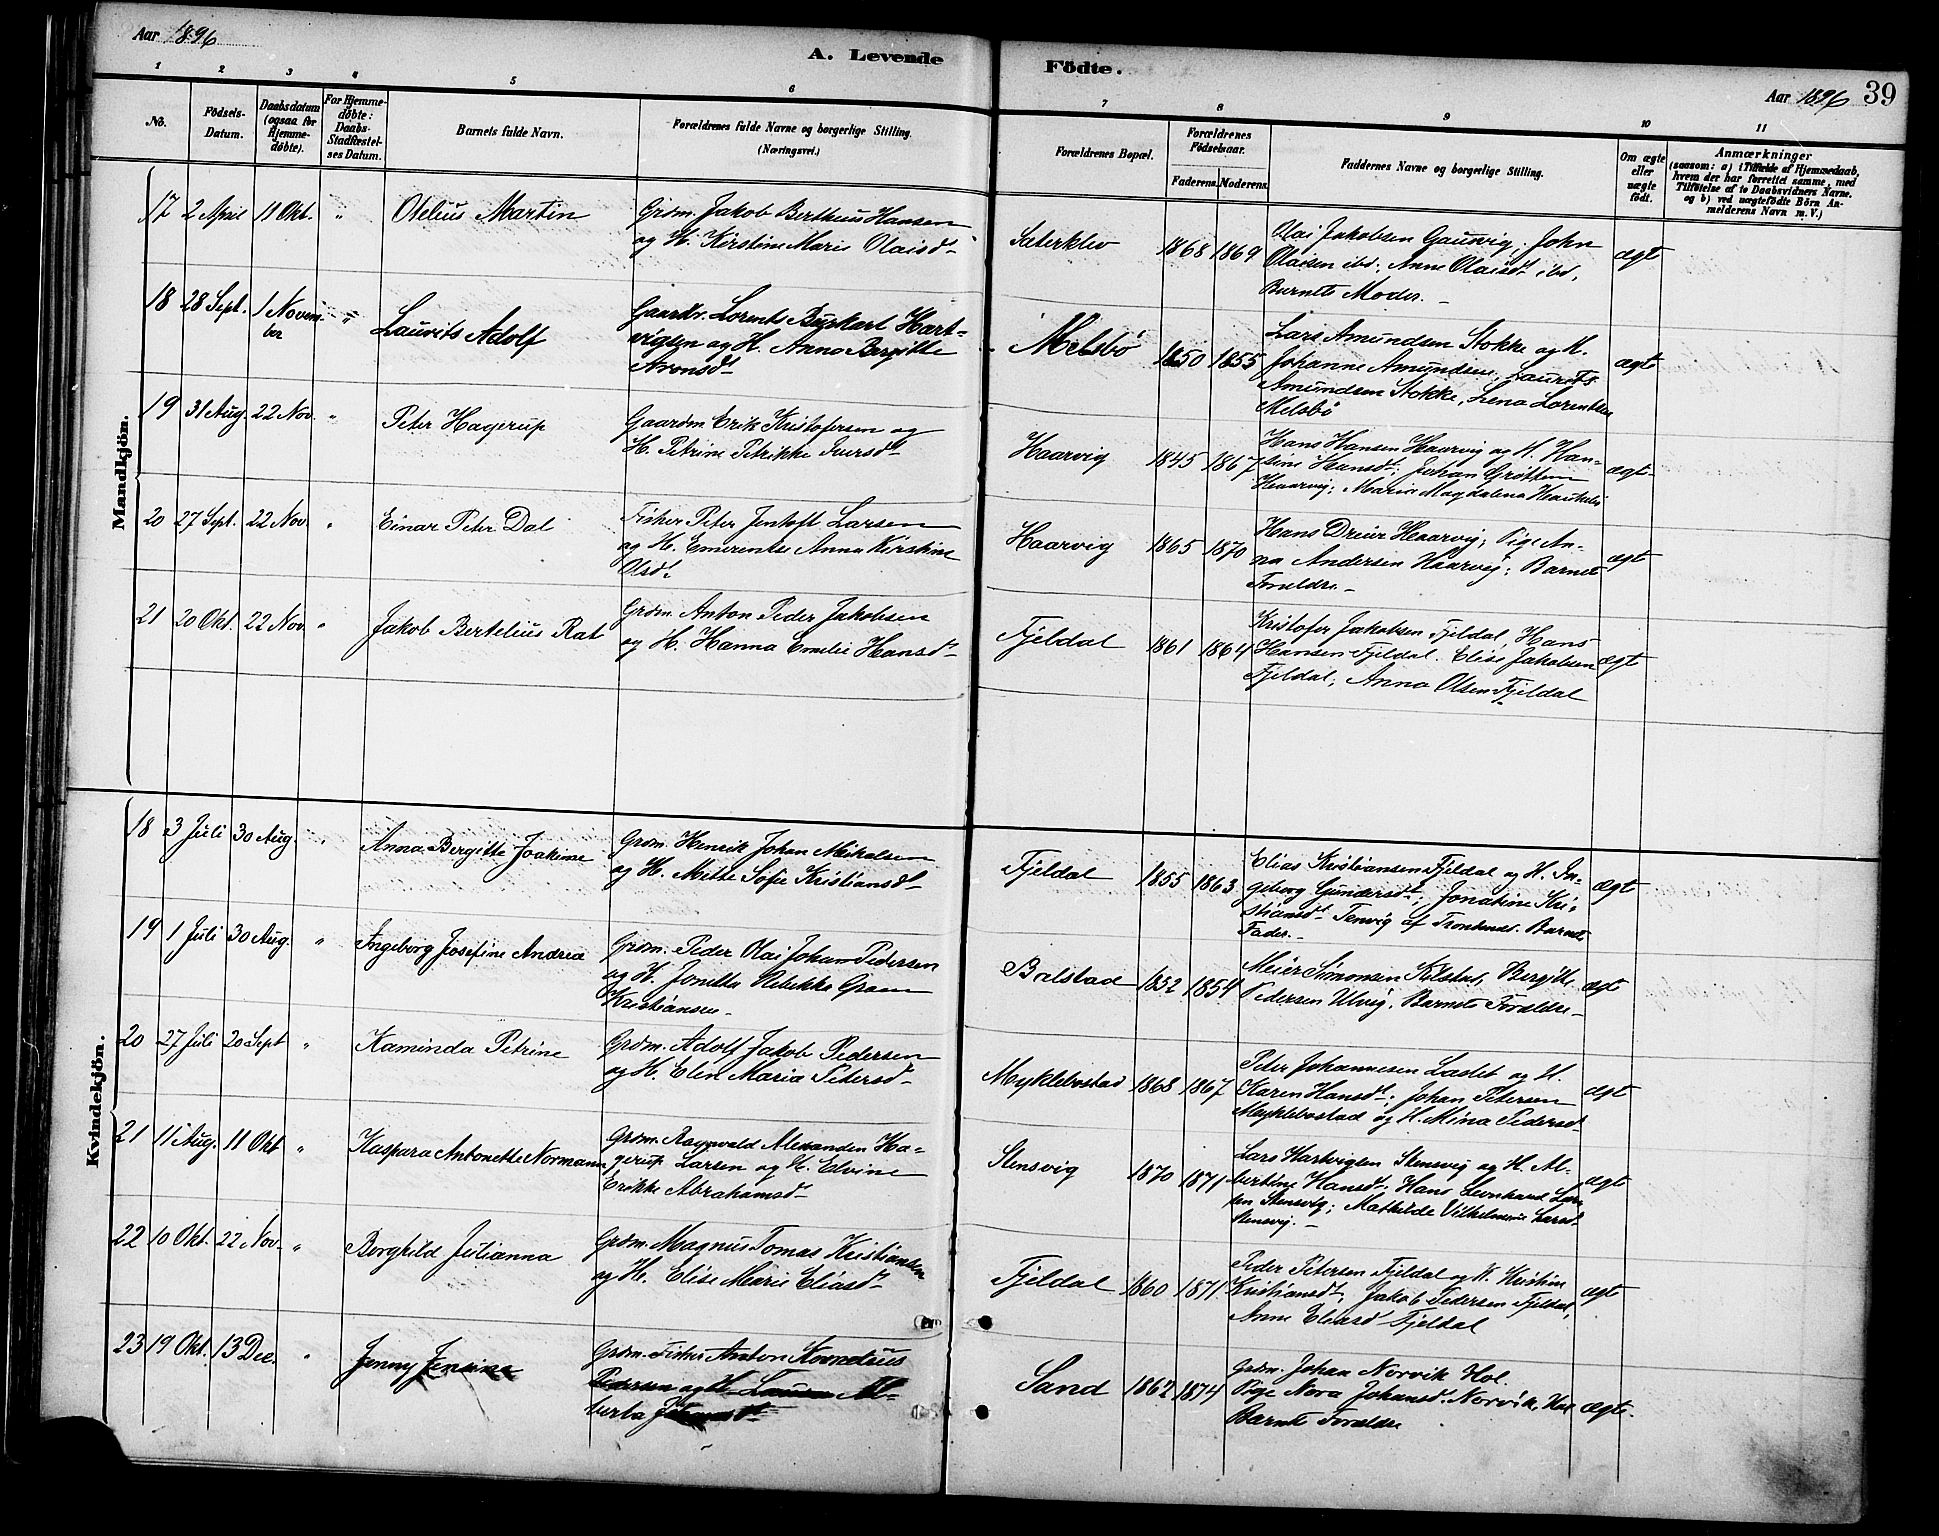 Aar 1896
A. Levende
Födte.
Aar 1896 39
1 2 3 4 5 6 7 8 9 10 11
No.
Födsels-
Datum.
Daabsdatum
(ogsaa for
Hjemme-
döbte).
For Hjemme-
döbte:
Daabs-
Stadfæstel-
ses Datum.
Barnets fulde Navn.
Forældrenes fulde Navne og borgerlige Stilling.
(Næringsvei.)
Forældrenes Bopæl.
Forældrenes
Födselsaar.
Faderens. Moderens.
Faddernes Navne og borgerlige Stilling.
Om ægte
eller
uægte
födt.
Anmærkninger
(saasom: a) i Tilfælde af Hjemmedaab,
hvem der har forrettet samme, med
Tilföielse af to Daabsvidners Navne.
og b) ved uægtefödte Börn An-
melderens Navn m. V.)
Mandkjön.
17 2 April 11 Okt. " Otelius Martin
Grdm. Jakob Bertheus Hansen
og H. Kirstine Marie Olaisdt
Saterklev 1868 1869
Olai Jakobsen Gausvig; John
Olaisen ibd; Anne Olaisdt ibd,
Barnets Moder.
ægt
18 28 Sept. 1 Novem-
ber " Laurits Adolf
Gaardbr. Lorents Burkart Hart-
vigsen og H. Anna Bergitte
Aronsdt
Melsbö 1850 1855
Lars Amundsen Stokke og H.
Johanne Amundsen, Laurits
Amundsen Stokke, Lena Lorentsen
Melsbö
ægte
19 31 Aug. 22 Nov. " Peter Hagerup
Gaardm Erik Kristofersen og
H. Petrine Petrikke Iversdt
Haarvig 1845 1867
Hans Hansen Haarvig og H. Han-
sine Hansdt; Johan Gröttem
Haarvig; Marie Magdalena
ægte
20 27 Sept. 22 Nov. " Einar Peter Dal
Fisker Peter Jentoft Larsen
og H. Emerentse Anna Kirstine
Olsdt
Haarvig 1865 1870
Hans Dreier Haarvig; Pige An-
na Andersen Haarvig; Barnets
Forældre
ægte
21 20 Okt. 22 Nov. " Jakob Bertelius Rat
Grdm. Anton Peder Jakobsen
og H. Hanna Emelie Hansdt
Fjeldal 1861 1864
Kristofer Jakobsen Fjeldal, Hans
Hansen Fjeldal. Elise Jakobsen
Fjeldal; Anna Olsen Fjeldal
ægte
Kvindekjön.
18 3 Juli 30 Aug. " Anna Bergitte Joakime
Grdm. Henrik Johan Mikalsen
og H. Mette Sofie Kristiansdt
Fjeldal 1855 1863
Elias Kristiansen Fjeldal og H. In-
geborg Gundersdt; Jonatine Kri-
stiansdt Tenvig af Trondenes. Barnets
Fader.
ægt
19 1 Juli 30 Aug. " Ingeborg Josefine Andrea
Grdm. Peder Olai Johan Pedersen
og H. Jonetta Rebekka Gram
Kristiansen
Balstad 1852 1854
Meier Simonsen Kilstad, Bergitte
Pedersen Ulvig, Barnets Forældre
ægt
20 27 Juli 20 Sept " Kaminda Petrine
Grdm. Adolf Jakob Pedersen
og H. Elen Maria Petersdt
Myklebostad 1868 1867
Peter Johannesen Lastet og H.
Karen Hansdt; Johan Petersen
Myklebostad og H. Mina Pedersdt
ægt
21 11 Aug. 11 Okt " Kaspara Antonette Normann
Grdm. Ragnvald Alexander Ha-
gerup Larsen og H. Edvine
Erikke Abrahamsdt
Stensvig 1870 1871
Lars Hartvigsen Stensvig og H. Al-
bertine Hansdt; Hans Leonhard Lar-
sen Stensvig; Mathilde Vilhelmine Larsdt
Stensvig.
ægt
22 10 Okt. 22 Nov. " Borghild Julianna
Grdm. Magnus Tomas Kristiansen
og H. Elise Marie Eliasdt
Fjeldal 1860 1871
Peder Petersen Fjeldal og H. Kristine
Kristiansdt; Jakob Pedersen Fjeldal,
Anne Eliasd Fjeldal
ægt
23 19 Okt. 13 Dec. " Jenny Jensine
Grdm. Fisker Anton Kornelius
Pedersen og H. Laura Al-
berta Johansdt
Sand 1862 1874
Grdm. Johan Norvik Hol.
Pige Nora Johansd. Norvik, Hol
Barnets Forældre
ægte.